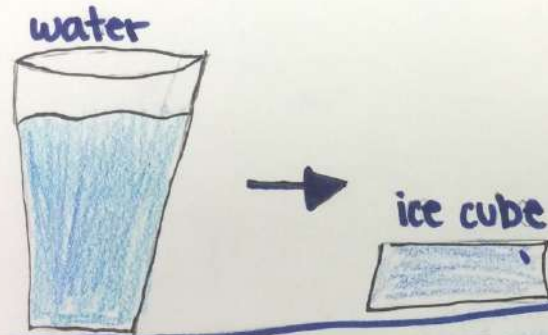 water
ice cube